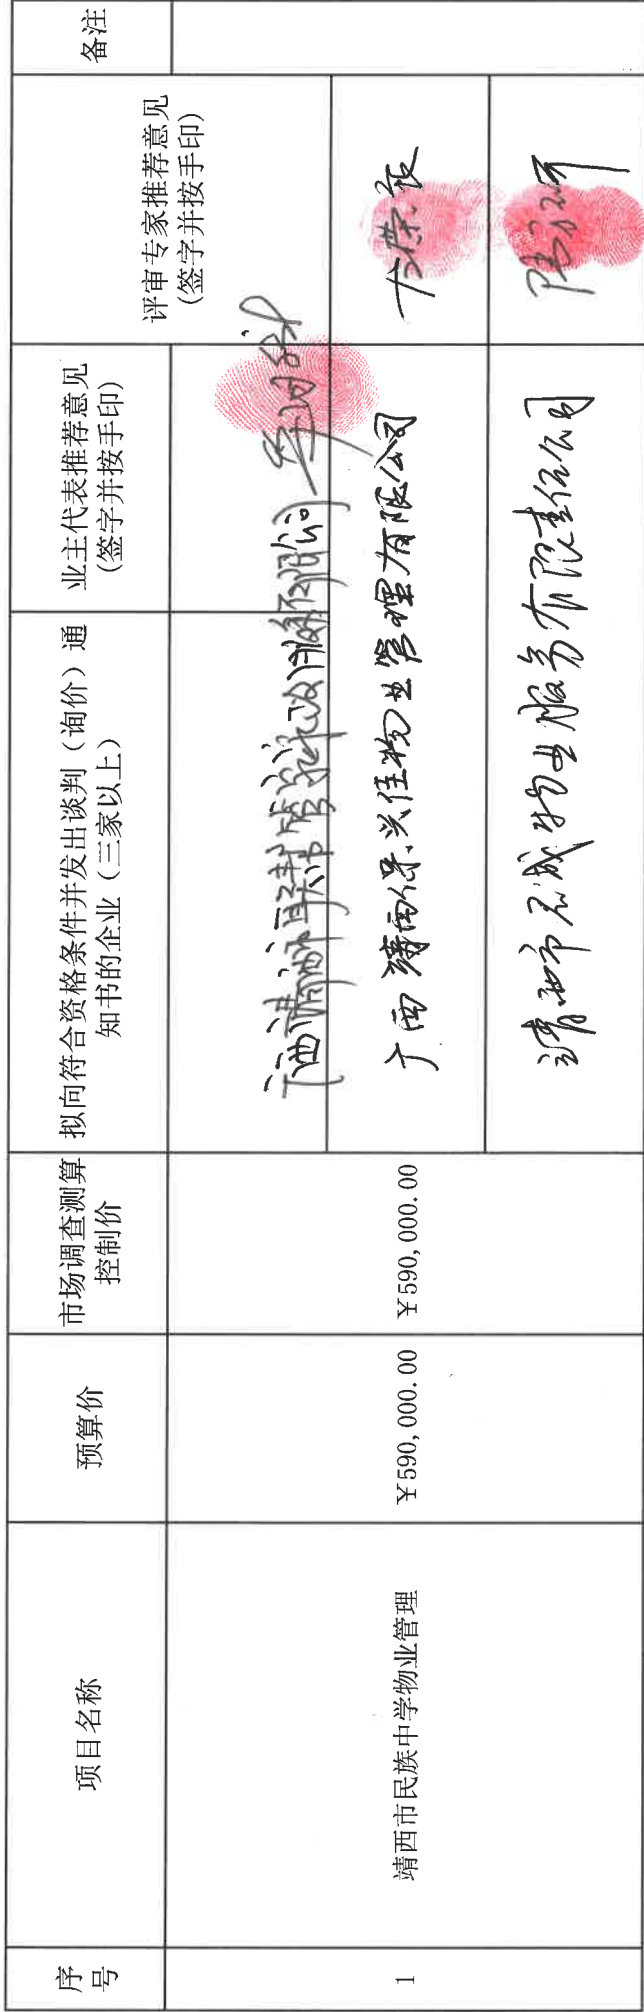 序号
项目名称
预算价
市场调查测算
控制价
拟向符合资格条件并发出谈判（询价）通
知书的企业（三家以上）
业主代表推荐意见
(签字并按手印)
评审专家推荐意见
(签字并按手印)
备注
1
靖西市民族中学物业管理
￥590,000.00
￥590,000.00
广西靖西保兴佳物业管理有限公司
靖西市石城物业服务有限责任公司